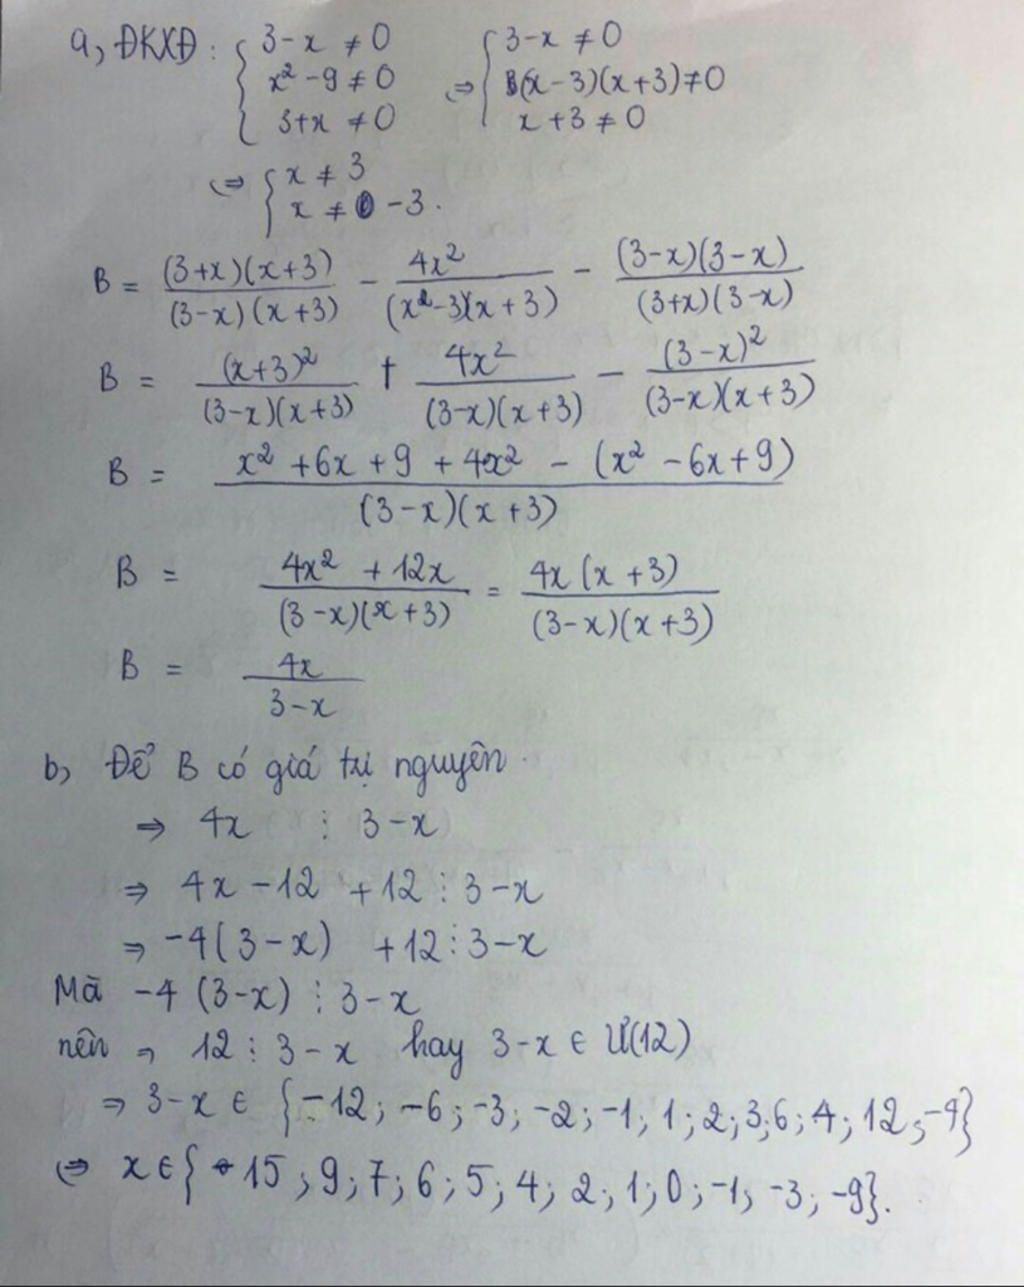 a, ĐKXĐ: { 3-x ≠ 0 ⇔ { 3-x ≠ 0
x² - 9 ≠ 0 (x-3)(x+3) ≠ 0
3+x ≠ 0 x+3 ≠ 0
⇔ { x ≠ 3
x ≠ -3.
B = (3+x)(x+3)/(3-x)(x+3) - 4x²/(x-3)(x+3) - (3-x)(3-x)/(3+x)(3-x)
B = (x+3)²/(3-x)(x+3) + 4x²/(3-x)(x+3) - (3-x)²/(3-x)(x+3)
B = x² + 6x + 9 + 4x² - (x² - 6x + 9)/(3-x)(x+3)
B = 4x² + 12x/(3-x)(x+3) = 4x(x+3)/(3-x)(x+3)
B = 4x/3-x
b, Để B có giá trị nguyên.
⇒ 4x ⋮ 3-x
⇒ 4x - 12 + 12 ⋮ 3-x
⇒ -4(3-x) + 12 ⋮ 3-x
Mà -4(3-x) ⋮ 3-x
nên ⇒ 12 ⋮ 3-x hay 3-x ∈ Ư(12)
⇒ 3-x ∈ {-12; -6; -3; -2; -1; 1; 2; 3; 6; 4; 12; -4}
⇔ x ∈ {15; 9; 7; 6; 5; 4; 2; 1; 0; -1; -3; -9}.